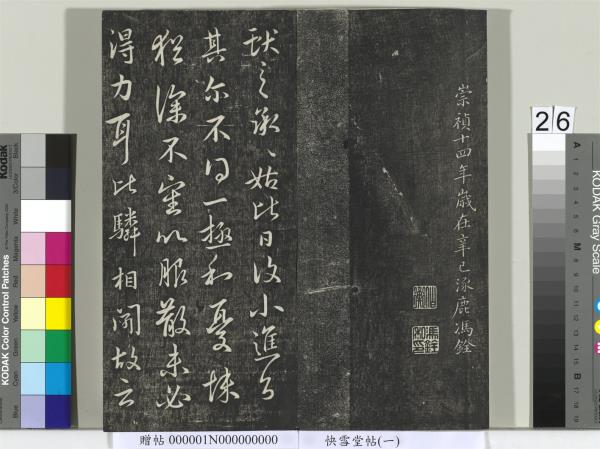 崇禎十四年歲在辛巳涿鹿馮銓
獻之承姑比日復小進
其爾不得一極和憂悚
猶深不審以服散未必
得力耳比驎相聞故云
26
贈帖 000001N000000000
快雪堂帖(一)
Kodak
KODAK Color Control Patches
Blue
Cyan
Green
Yellow
Red
Magenta
White
3/Color
Black
KODAK Gray Scale
A
1
2
3
4
5
6
M
8
9
10
11
12
13
14
15
B
17
18
19